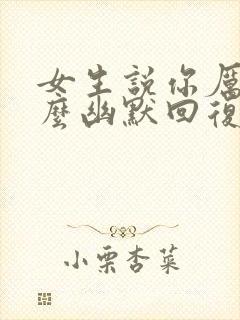 女生說你厲
麼幽默回復
小栗杏菜